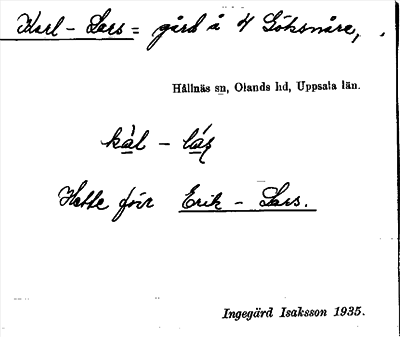 Karl - Lars = gård å 4 Göksnåre,
Hållnäs sn, Olands hd, Uppsala län.
kàl - láṣ
Hette förr Erik - Lars.
Ingegärd Isaksson 1935.